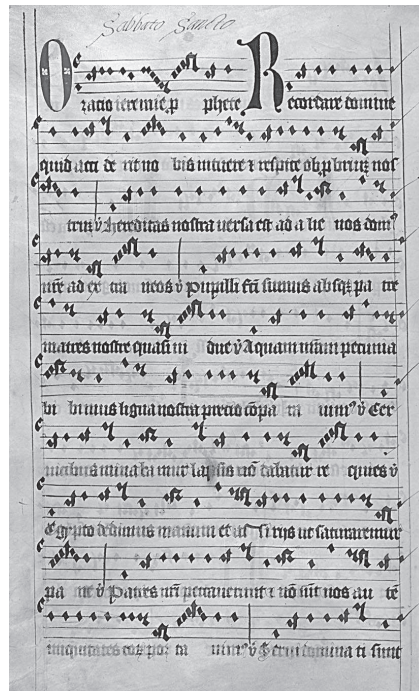 Sabbato Sancto
Oratio ieremie p phete Recordare domine
quid acci de rit no bis intuere ⁊ respice obprbriuꝫ nos
trum ꝟ hereditas nostra versa est ad a lie nos domꝰ
nr̄e ad ex tra neos ꝟ Pupilli fc̄i sumus absqꝫ pa tre
matres nostre quasi vi due ꝟ Aquam nr̄am pecunia
bi bimus ligna nostra precio cōpa ra uimꝰ ꝟ Cer
uicibus mina ba mur lassis nō dabatur re quies ꝟ
Egypto dedimus manum et as si rijs ut saturaremur
pa ne ꝟ Patres nr̄i peccauerunt ⁊ nō sūt nos au tē
iniquitates eoꝝ por ta uimꝰ ꝟ Serui domina ti sunt